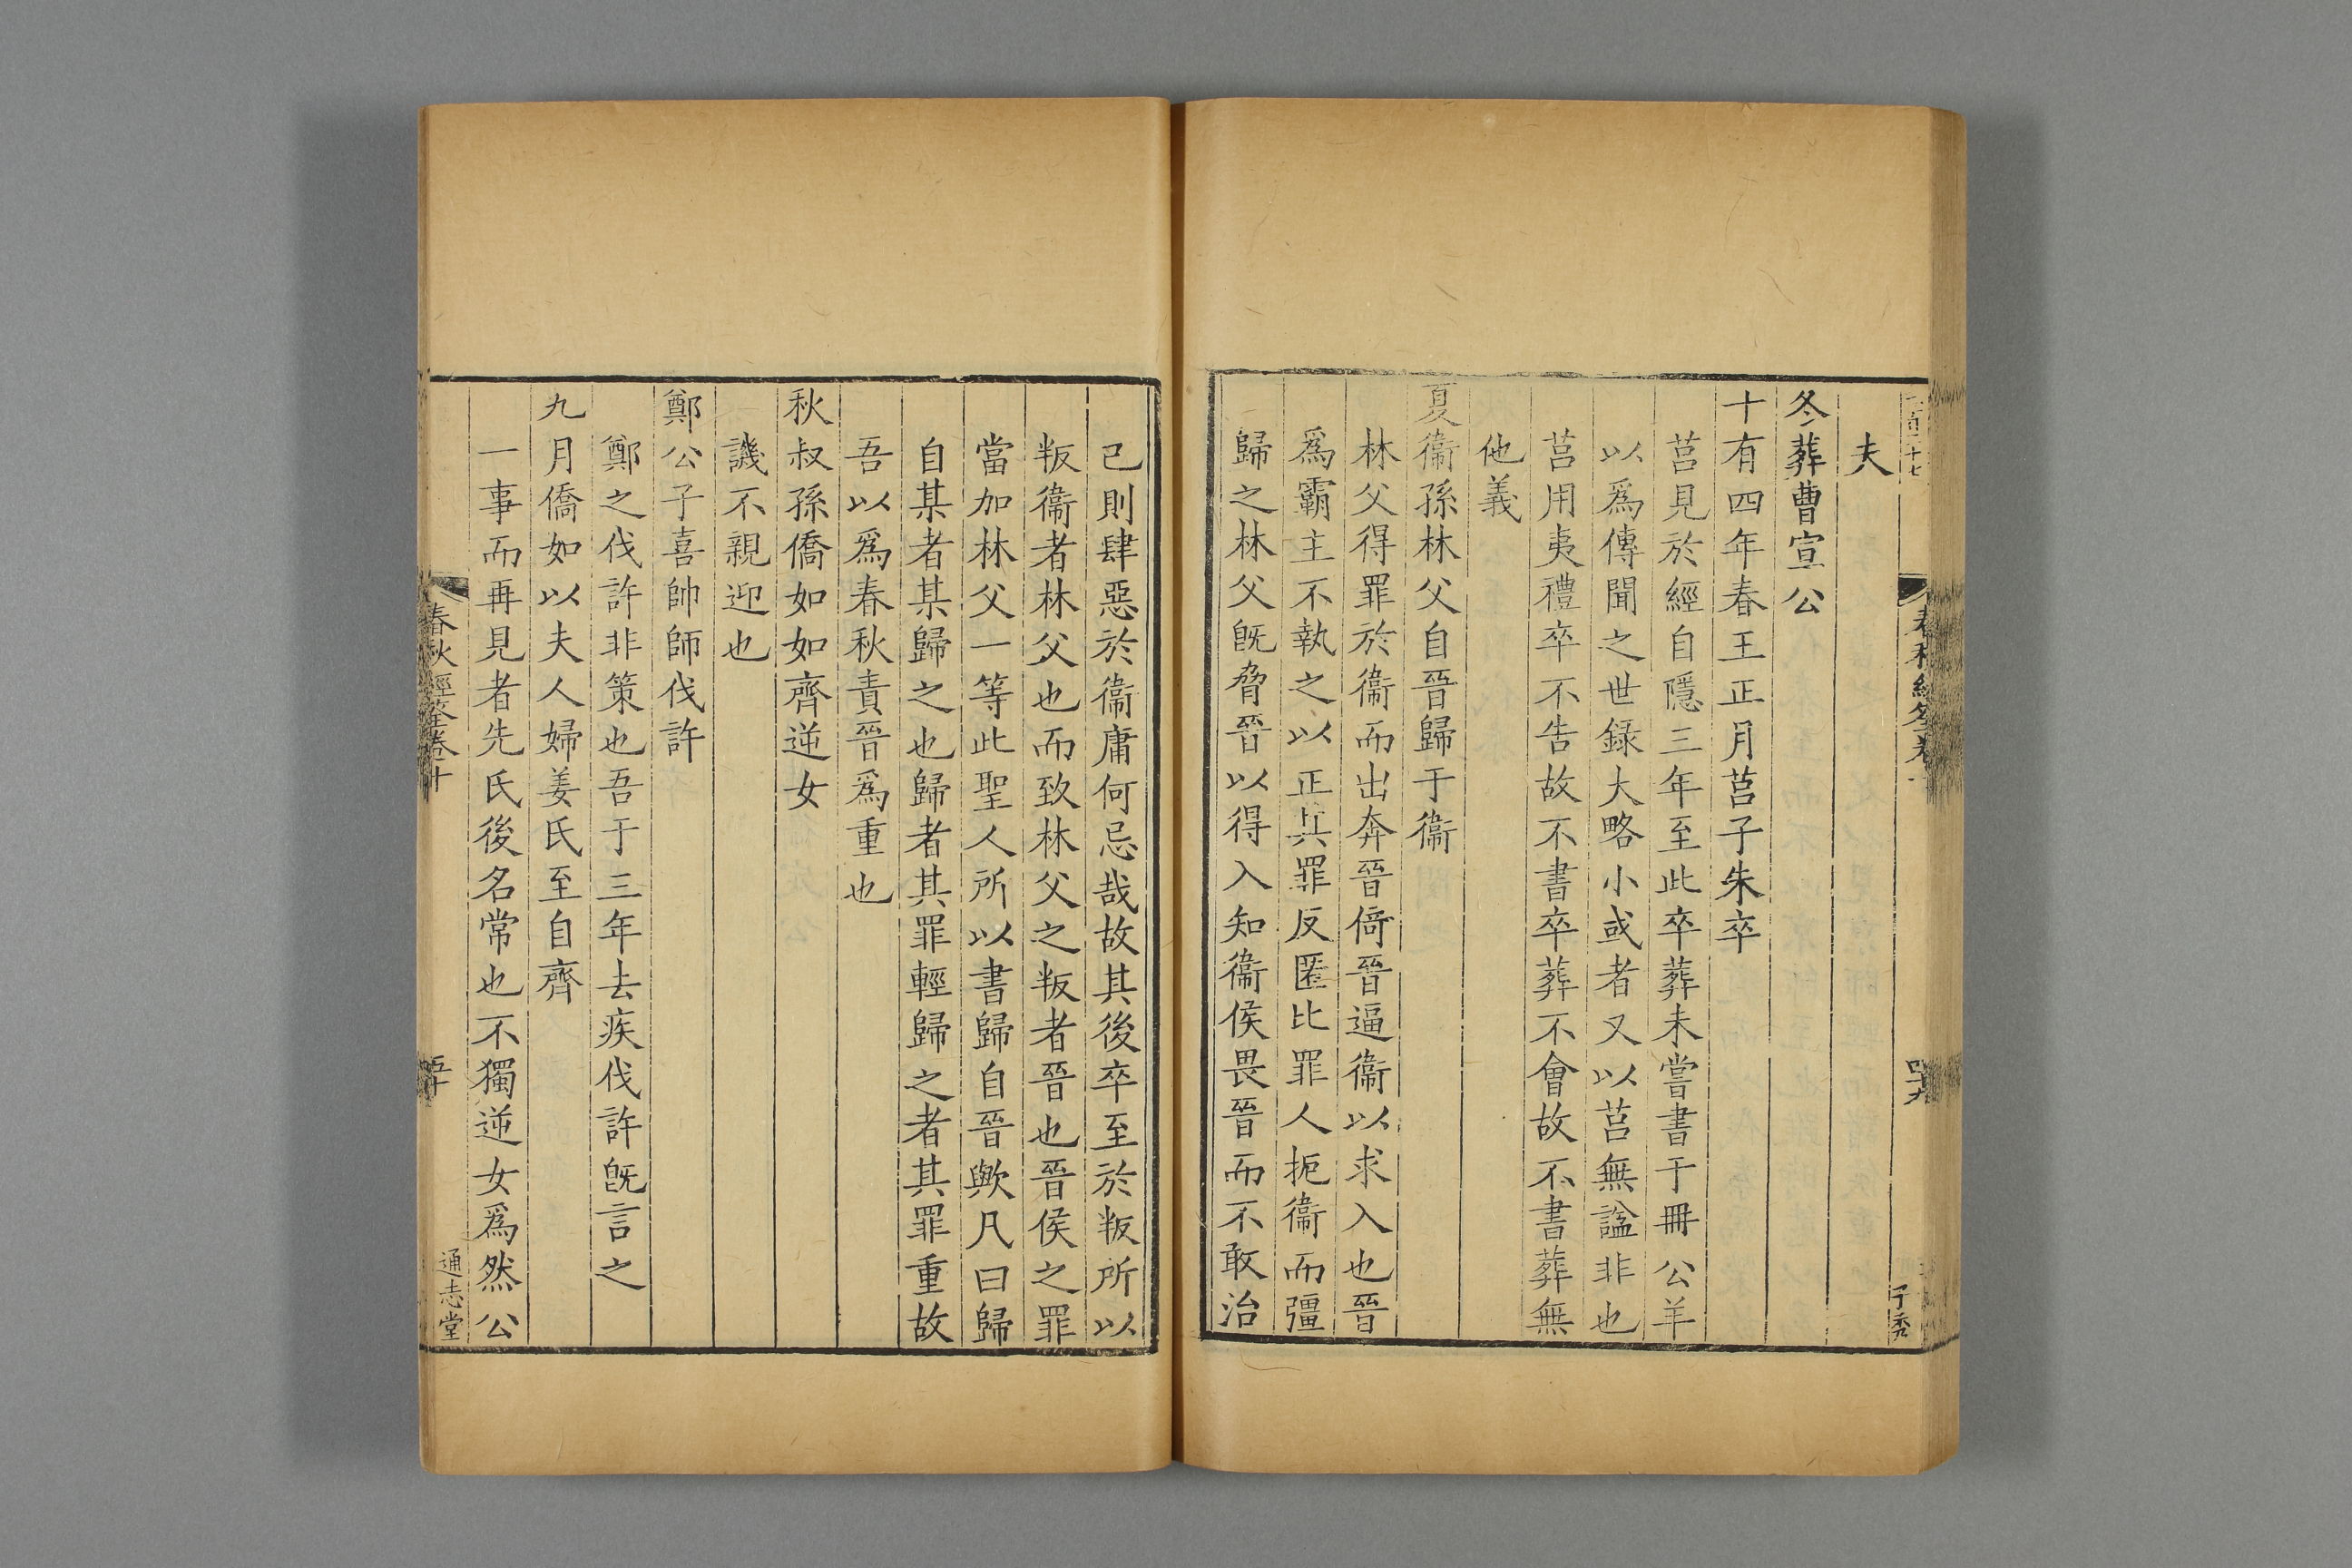 夫
冬葬曹宣公
十有四年春王正月莒子朱卒
莒見於經自隱三年至此卒葬未嘗書于冊公羊
以爲傳聞之世録大略小或者又以莒無諡非也
莒用夷禮卒不告故不書卒葬不會故不書葬無
他義
夏衞孫林父自晉歸于衞
林父得罪於衞而出奔晉倚晉逼衞以求入也晉
爲霸主不執之以正其罪反匿比罪人扼衞而彊
歸之林父旣脅晉以得入知衞侯畏晉而不敢治
已則肆惡於衞庸何忌哉故其後卒至於叛所以
叛衞者林父也而致林父之叛者晉也晉侯之罪
當加林父一等此聖人所以書歸自晉歟凡曰歸
自某者某歸之也歸者其罪輕歸之者其罪重故
吾以爲春秋責晉爲重也
秋叔孫僑如如齊逆女
譏不親迎也
鄭公子喜帥師伐許
鄭之伐許非策也吾于三年去疾伐許旣言之
九月僑如以夫人婦姜氏至自齊
一事而再見者先氏後名常也不獨逆女爲然公
春秋經筌卷十
五十
通志堂